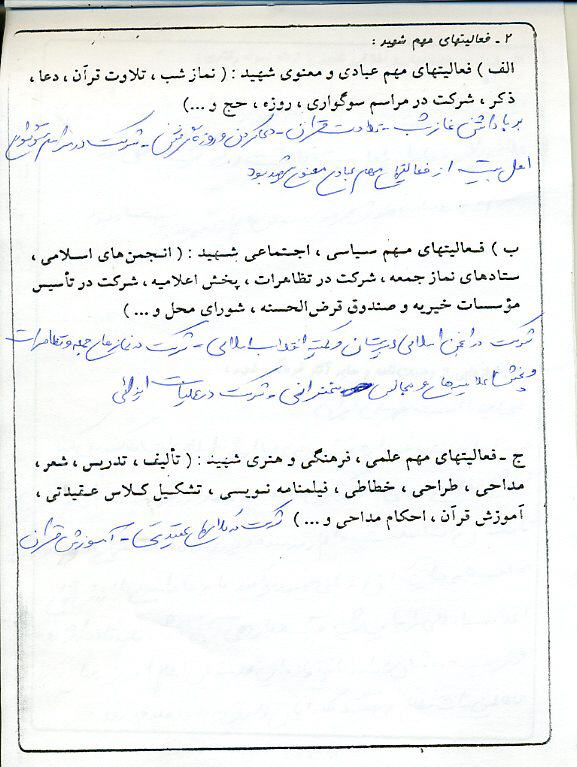 ۲ ـ فعالیتهای مهم شهید :
الف ) فعالیتهای مهم عبادی و معنوی شهید : ( نماز شب ، تلاوت قرآن ، دعا ،
ذکر ، شرکت در مراسم سوگواری ، روزه ، حج و ...)
برپا داشتن نماز شب - تلاوت قرآن - دعا کردن و روزه گرفتن - شرکت در مراسم سوگواری
اهل بیت از فعالیتهای مهم عبادی معنوی شهید بود
ب ) فـعالیتهای مـهم سیـاسی ، اجـتماعی شـهید : ( انـجمن‌های اسـلامی ،
ستادهای نماز جمعه ، شرکت در تظاهرات ، پخش اعلامیه ، شرکت در تأسیس
مؤسسات خیریه و صندوق قرض‌الحسنه ، شورای محل و ... )
شرکت در انجمن اسلامی دبیرستان و کمیته انقلاب اسلامی - شرکت در نمازهای جمعه و تظاهرات
و پخش اعلامیه‌ها و مجالس سخنرانی - شرکت در عملیات
ج ـ فعالیتهای مهم علمی ، فرهنگی و هنری شهید : ( تألیف ، تدریس ، شعر ،
مداحی ، طراحی ، خطاطی ، فیلمنامه نـویسی ، تشکـیل کـلاس عـقیدتی ،
آموزش قرآن ، احکام مداحی و ... ) شرکت در کلاسهای عقیدتی - آموزش قرآن